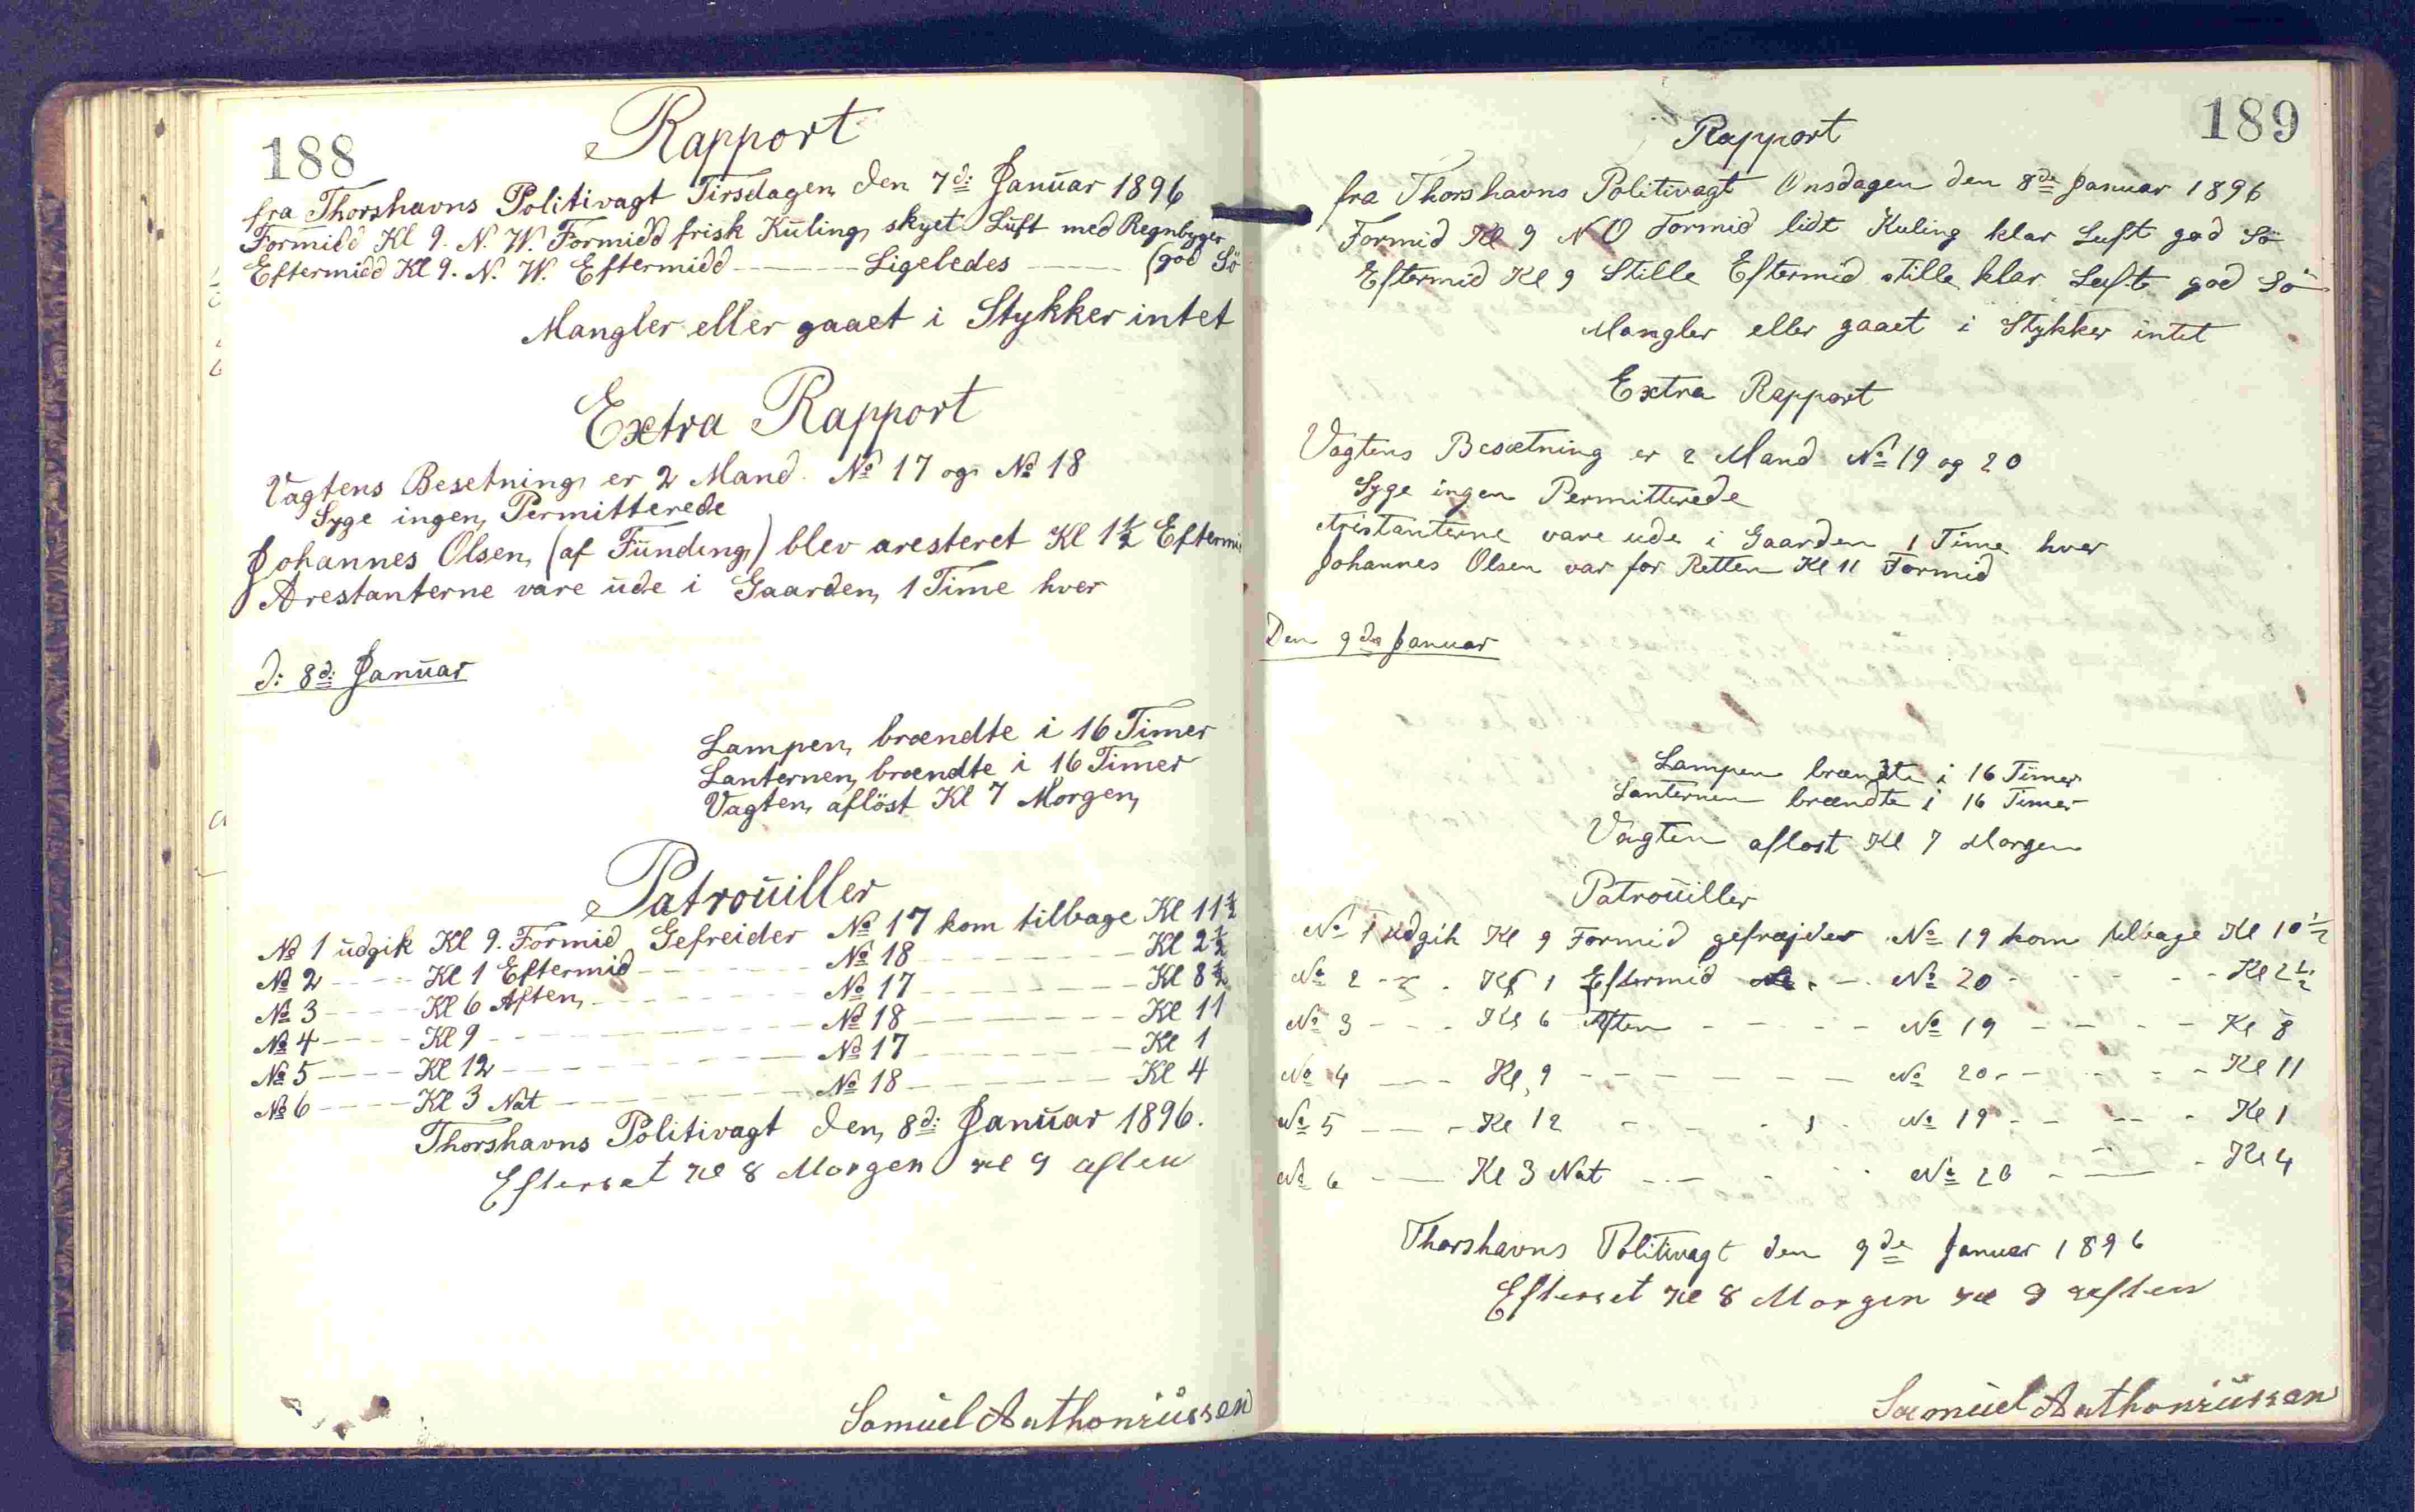 188
Rapport
fra Thorshavns Politivagt Tirsdagen den 7d: Januar 1896
Formidd Kl 9. N. W. Formidd frisk Kuling, skyet Luft med Regnbyger
Eftermidd Kl 9. N. W. Eftermidd ——— Ligeledes ——— (god Sö
Mangler eller gaaet i Stykker intet
Extra Rapport
Vagtens Besetning er 2 Mand. No 17 og No 18
Syge ingen, Permitterede
Johannes Olsen, (af Funding) blev aresteret Kl 1½ Eftermi
Arestanterne vare ude i Gaarden, 1 Time hver
d: 8d: Januar
Lampen, brændte i 16 Timer
Lanternen, brændte i 16 Timer
Vagten, aflöst Kl 7 Morgen,
Patrouiller
No 1 udgik Kl 9. Formid Gefreider No 17 kom tilbage Kl 11½
No 2 ---- Kl 1 Eftermid ---- No 18 ---- Kl 2½
No 3 ---- Kl 6 Aften, ---- No 17 ---- Kl 8½
No 4 ---- Kl 9 ---- No 18 ---- Kl 11
No 5 ---- Kl 12 ---- No 17 ---- Kl 1
No 6 ---- Kl 3 Nat ---- No 18 ---- Kl 4
Thorshavns Politivagt den, 8d: Januar 1896.
Efterset Kl 8 Morgen Kl 9 aften
Samuel Anthoniussen
189
Rapport
fra Thorshavns Politivagt Onsdagen den 8de Januar 1896
Formid Kl 9 N O Formid lidt Kuling klar Luft god Sö
Eftermid Kl 9 Stille Eftermid stille klar Luft god Sö
Mangler eller gaaet i Stykker intet
Extra Rapport
Vagtens Besætning er 2 Mand No 19 og 20
Syge ingen Permitterede
Aristanterne vare ude i Gaarden 1 Time hver
Johannes Olsen var for Retten Kl 11 Formid
Den 9de Januar
Lampen brændte i 16 Timer
Lanternen brændte i 16 Timer
Vagten aflost Kl 7 Morgen
Patrouiller
No 1 udgik Kl 9 Formid gefrejder No 19 kom tilbage Kl 10½
No 2 --- Kl 1 Eftermid --- No 20 --- Kl 2½
No 3 --- Kl 6 Aften --- No 19 --- Kl 8
No 4 --- Kl 9 --- No 20 --- Kl 11
No 5 --- Kl 12 --- No 19 --- Kl 1
No 6 --- Kl 3 Nat --- No 20 --- Kl 4
Thorshavns Politivagt den 9de Januar 1896
Efterset Kl 8 Morgen Kl 9 aften
Samuel Anthoniussen